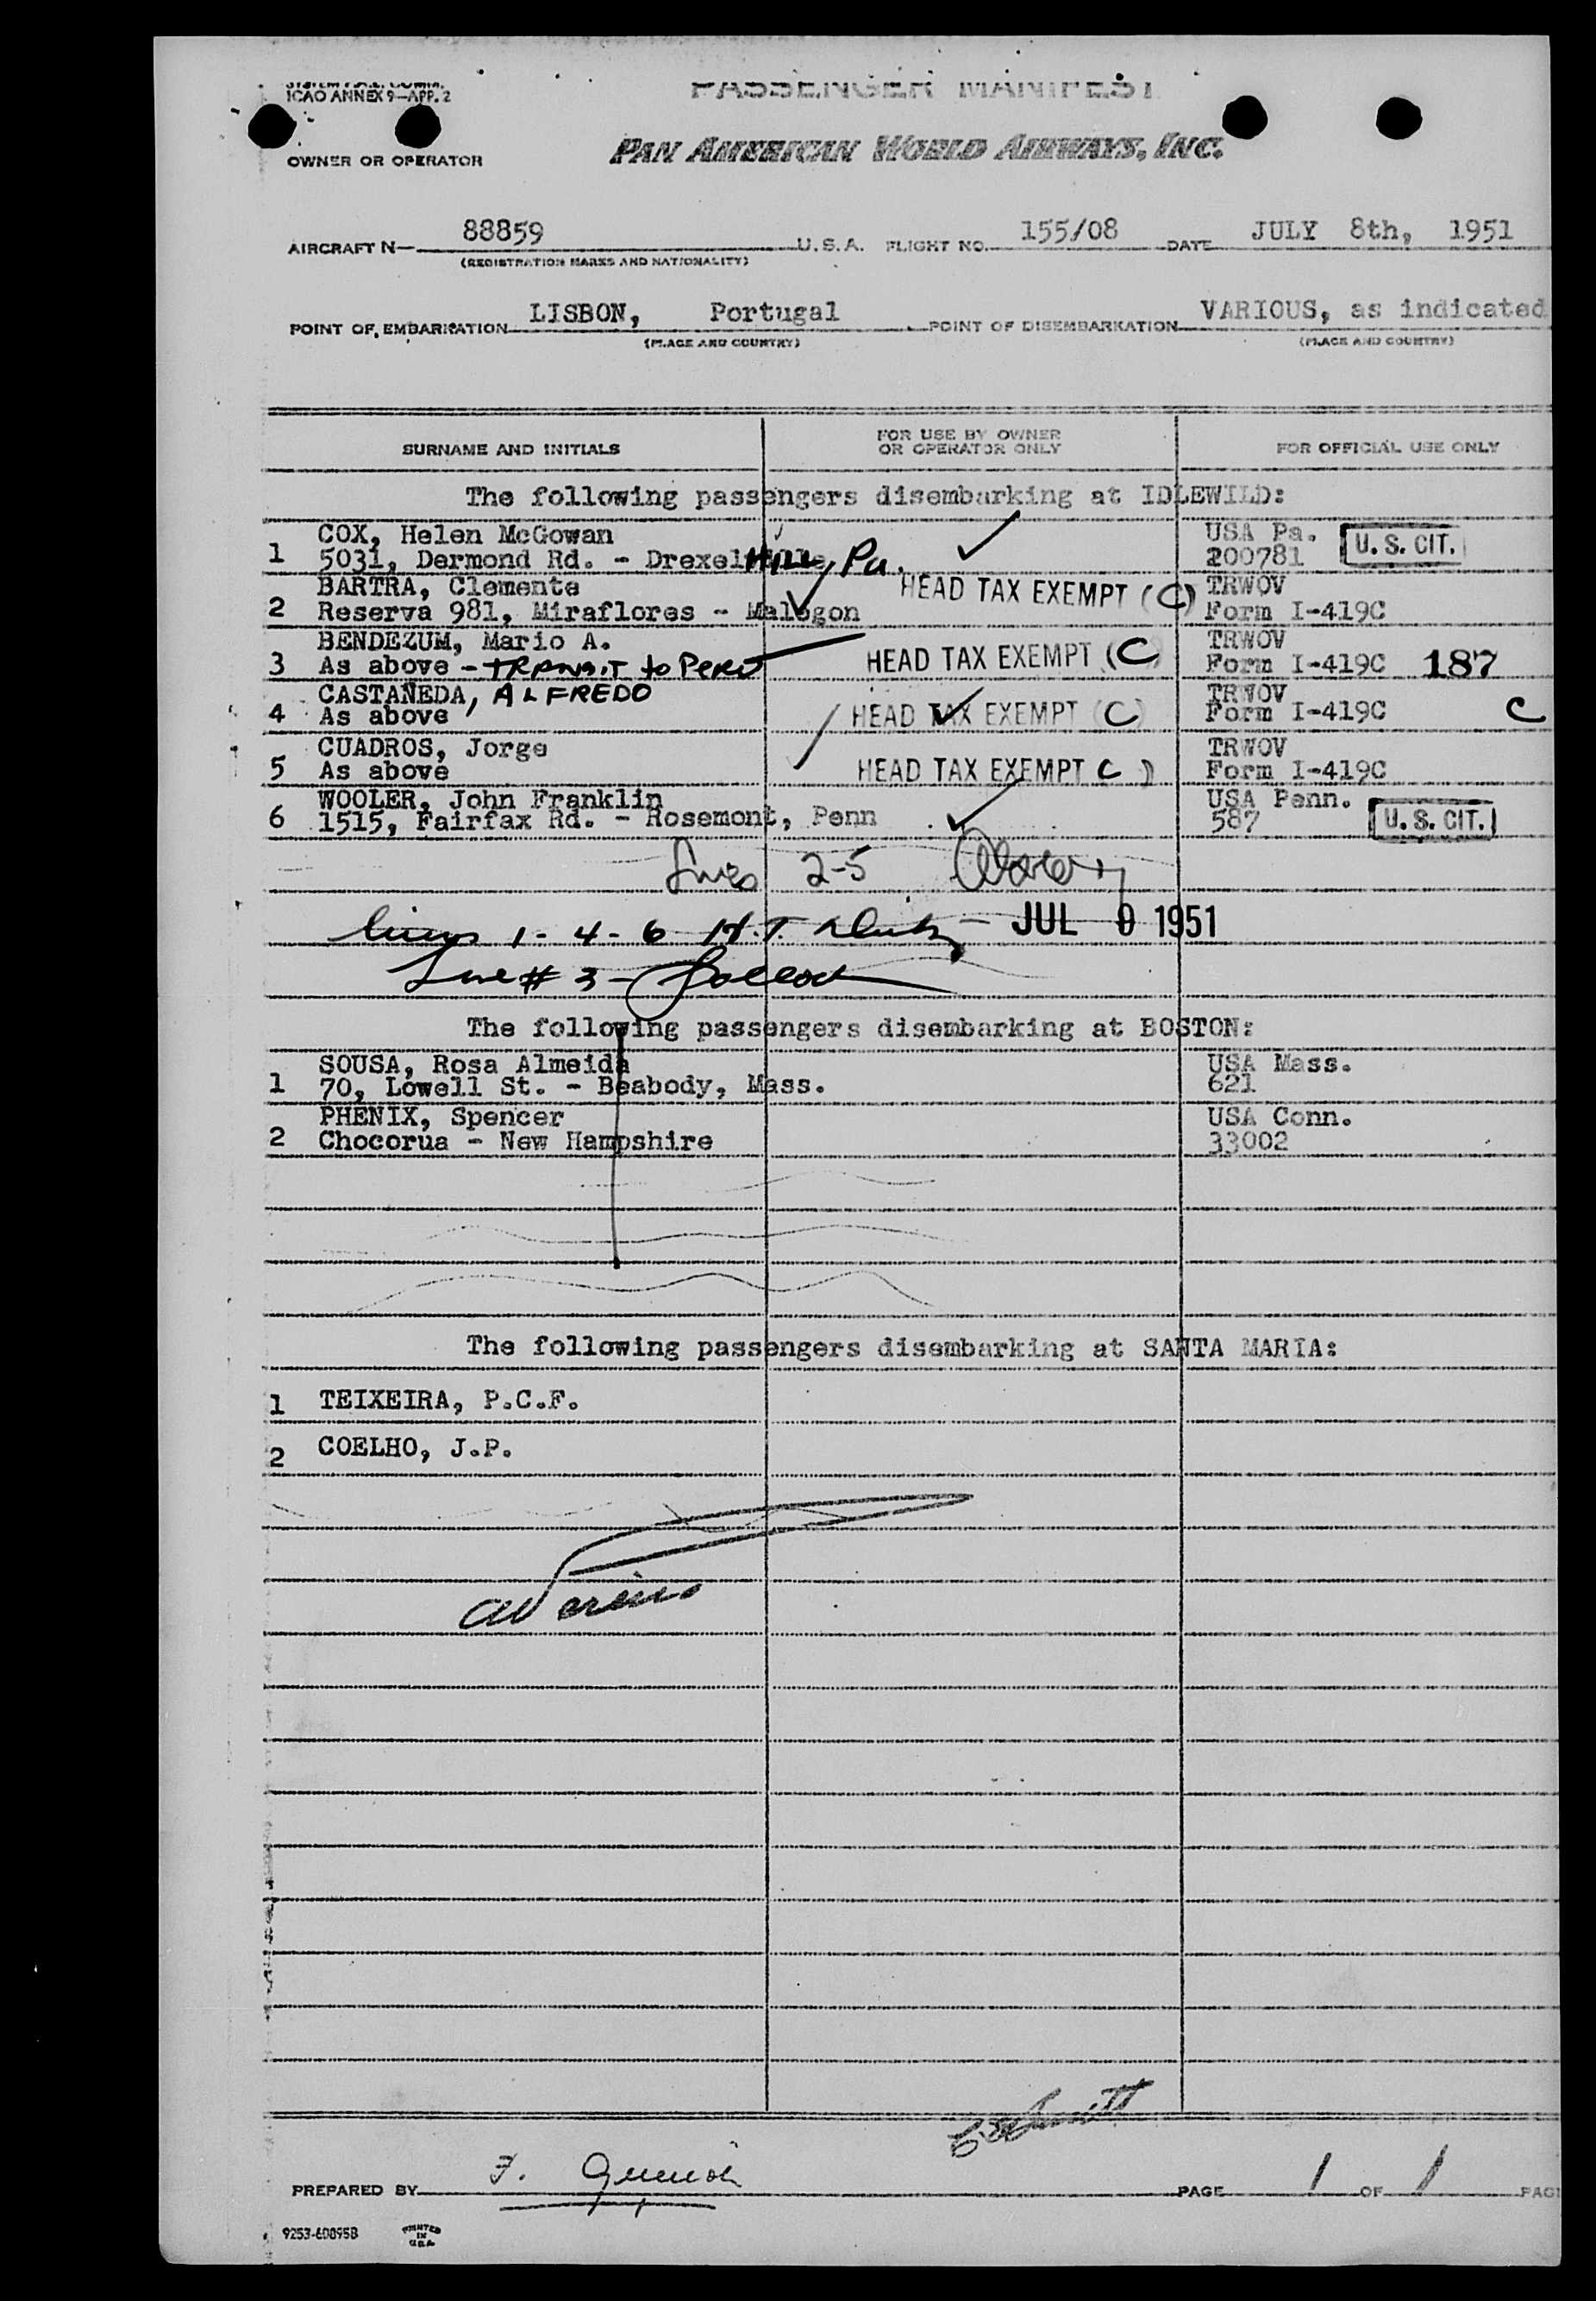 ICAO ANNEX 9—APP. 2
PASSENGER MANIFEST
OWNER OR OPERATOR PAN AMERICAN WORLD AIRWAYS, INC.
AIRCRAFT N— 88859 U.S.A. FLIGHT NO. 155/08 DATE JULY 8th, 1951
(REGISTRATION MARKS AND NATIONALITY)
POINT OF EMBARKATION LISBON, Portugal POINT OF DISEMBARKATION VARIOUS, as indicated
(PLACE AND COUNTRY) (PLACE AND COUNTRY)
SURNAME AND INITIALS FOR USE BY OWNER OR OPERATOR ONLY FOR OFFICIAL USE ONLY
The following passengers disembarking at IDLEWILD:
COX, Helen McGowan USA Pa.
1 5031, Dermond Rd. - Drexel Hill, Pa. 200781 U. S. CIT.
BARTRA, Clemente HEAD TAX EXEMPT (C) TRWOV
2 Reserva 981, Miraflores - Malogon Form I-419C
BENDEZUM, Mario A. TRWOV
3 As above - TRANSIT to PERU HEAD TAX EXEMPT (C) Form I-419C 187
CASTAÑEDA, ALFREDO TRWOV
4 As above HEAD TAX EXEMPT (C) Form I-419C C
CUADROS, Jorge TRWOV
5 As above HEAD TAX EXEMPT C ) Form I-419C
WOOLER, John Franklin USA Penn.
6 1515, Fairfax Rd. - Rosemont, Penn 587 U. S. CIT.
Lines 2-5
Lines 1 - 4 - 6 H.T. JUL 9 1951
Line # 3 -
The following passengers disembarking at BOSTON:
SOUSA, Rosa Almeida USA Mass.
1 70, Lowell St. - Beabody, Mass. 621
PHENIX, Spencer USA Conn.
2 Chocorua - New Hampshire 33002
The following passengers disembarking at SANTA MARIA:
1 TEIXEIRA, P.C.F.
2 COELHO, J.P.
PREPARED BY F. PAGE 1 OF 1 PAG
9253-60895B PRINTED IN U.S.A.